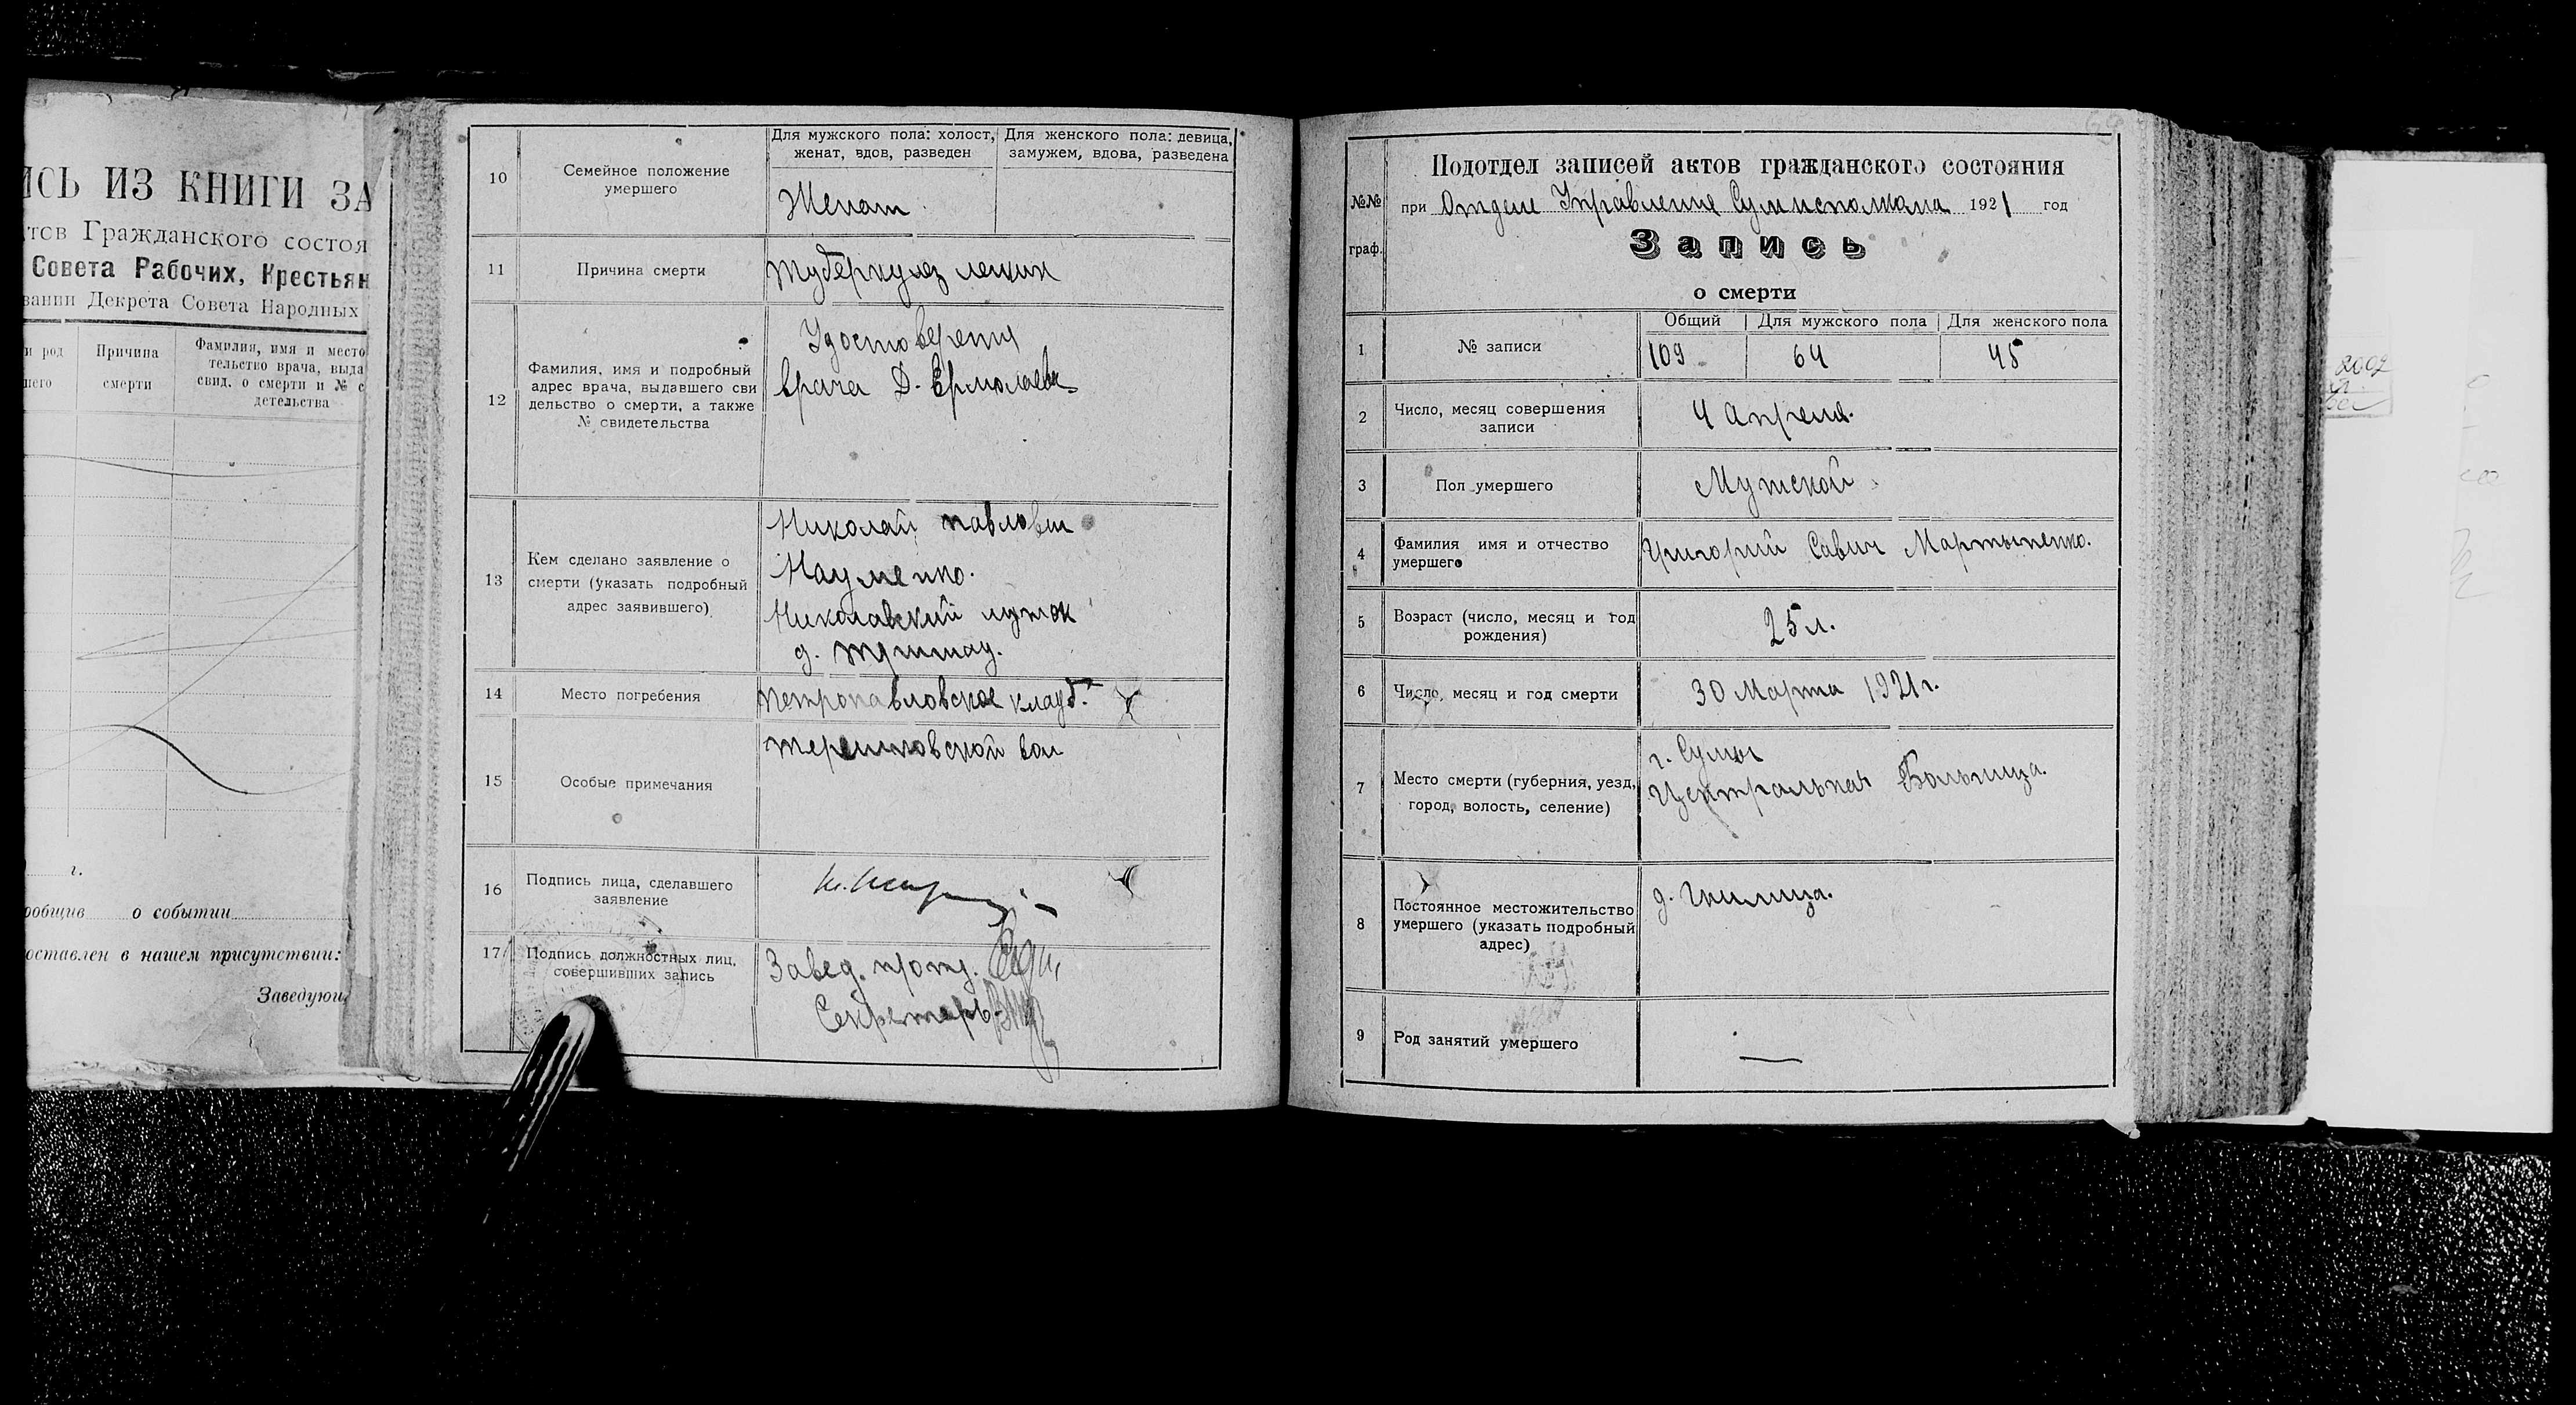 ИСЬ ИЗ КНИГИ ЗА
тов Гражданского состоя
Совета Рабочих, Крестьян
вании Декрета Совета Народных
и род
Причина
смерти
Фамилия, имя и место
тельство врача, выда
свид. о смерти и № с
детельства
г.
о событии
оставлен в нашем присутствии:
Заведующ
10
Семейное положение
умершего
Для мужского пола: холост,
женат, вдов, разведен
Для женского пола: девица,
замужем, вдова, разведена
Женат
11
Причина смерти
Туберкулез легких
12
Фамилия, имя и подробный
адрес врача, выдавшего сви
дельство о смерти, а также
№ свидетельства
Удостоверения
врача Д. Ермолаева
13
Кем сделано заявление о
смерти (указать подробный
адрес заявившего)
Николай павлович
Науменко.
14
Место погребения
Петропавловское кладб.
15
Особые примечания
терешковской вол
16
Подпись лица, сделавшего
заявление
17
Подпись должностных лиц,
совершивших запись
Завед.
Секретарь
№№
граф.
Подотдел записей актов гражданского состояния
при Отделе Управления Сумисполкома 1921 год
Запись
о смерти
1
№ записи
Общий
Для мужского пола
Для женского пола
109
64
45
2
Число, месяц совершения
записи
4 Апреля.
3
Пол умершего
Мужской
4
Фамилия имя и отчество
умершего
Григорий Савич Мартыненко.
5
Возраст (число, месяц и год
рождения)
25 л.
6
Число, месяц и год смерти
30 Марта 1921 г.
7
Место смерти (губерния, уезд,
город, волость, селение)
г. Сумы
Центральная Больница.
8
Постоянное местожительство
умершего (указать подробный
адрес)
д. Гнилица.
9
Род занятий умершего
—
2002